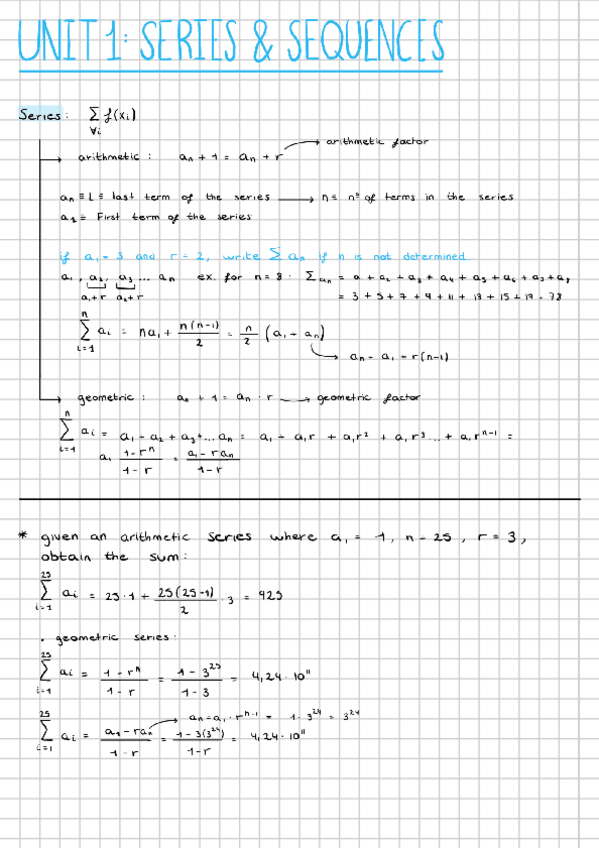 UNIT 1: SERIES & SEQUENCES
Series: ∑ f(xi)
∀i
→ arithmetic factor
arithmetic: an + 1 = an + r
an ≡ L ≡ last term of the series → n ≡ nº of terms in the series
a1 ≡ First term of the series
if a1 = 3 and r = 2, write ∑ an if n is not determined
a1, a2, a3 ... an ex. for n=8: ∑an = a + a2 + a3 + a4 + a5 + a6 + a7 + a8
a1+r a2+r = 3 + 5 + 7 + 9 + 11 + 13 + 15 + 17 =
n
∑ ai = na1 + n(n-1)/2 = n/2 (a1 + an)
i=1
→ an = a1 - r(n-1)
geometric: an + 1 = an · r → geometric factor
n
∑ ai = a1 + a2 + a3 + ... an = a1 + a1r + a1r² + a1r³ ... + a1r^n-1 =
i=1
a1 1-r^n/1-r = a1-ran/1-r
* given an arithmetic series where a1 = 1, n = 25, r = 3,
obtain the sum:
25
∑ ai = 25·1 + 25(25-1)/2 · 3 = 925
i=1
· geometric series:
25
∑ ai = 1-r^n/1-r = 1-3^25/1-3 = 4,24·10^11
i=1
→ an = a1·r^n-1 = 1·3^24 = 3^24
25
∑ ai = a1-ran/1-r = 1-3(3^24)/1-r = 4,24·10^11
i=1